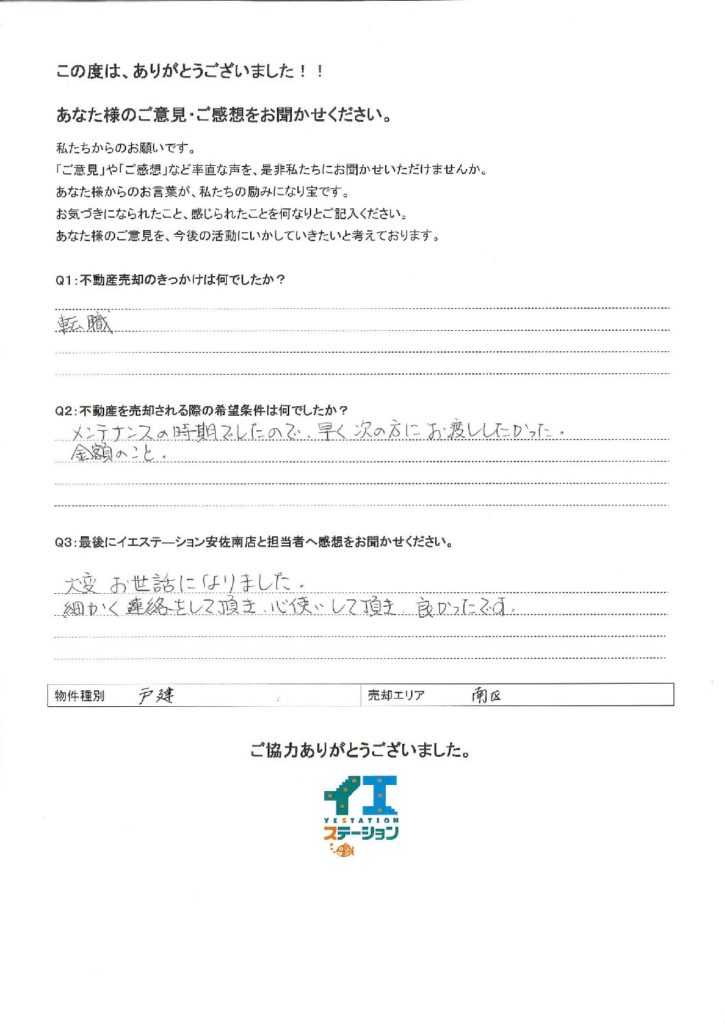 この度は、ありがとうございました！！
あなた様のご意見・ご感想をお聞かせください。
私たちからのお願いです。
「ご意見」や「ご感想」など率直な声を、是非私たちにお聞かせいただけませんか。
あなた様からのお言葉が、私たちの励みになり宝です。
お気づきになられたこと、感じられたことを何なりとご記入ください。
あなた様のご意見を、今後の活動にいかしていきたいと考えております。
Q1：不動産売却のきっかけは何でしたか？
転職
Q2：不動産を売却される際の希望条件は何でしたか？
メンテナンスの時期でしたので、早く次の方にお渡ししたかった。
金額のこと。
Q3：最後にイエステーション安佐南店と担当者へ感想をお聞かせください。
大変お世話になりました。
細かく連絡をして頂き、心使いして頂き、良かったです。
物件種別 戸建 売却エリア 南区
ご協力ありがとうございました。
イエ
YESTATION
ステーション